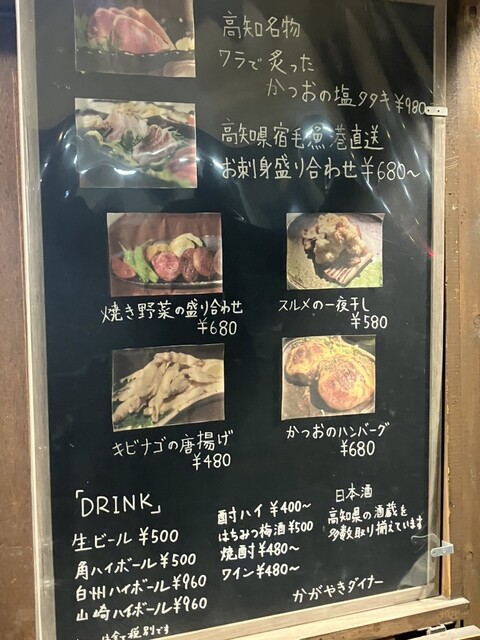 高知名物
ワラで炙った
かつおの塩タタキ ¥980
高知県宿毛魚港直送
お刺身盛り合わせ ¥680〜
焼き野菜の盛り合わせ
¥680
スルメの一夜干し
¥580
キビナゴの唐揚げ
¥480
かつおのハンバーグ
¥680
「DRINK」
生ビール ¥500
角ハイボール ¥500
白州ハイボール ¥960
山崎ハイボール ¥960
酎ハイ ¥400〜
はちみつ梅酒 ¥500
焼酎 ¥480〜
ワイン ¥480〜
日本酒
高知県の酒蔵を
多数取り揃えています
かがやきダイナー
全て税別です